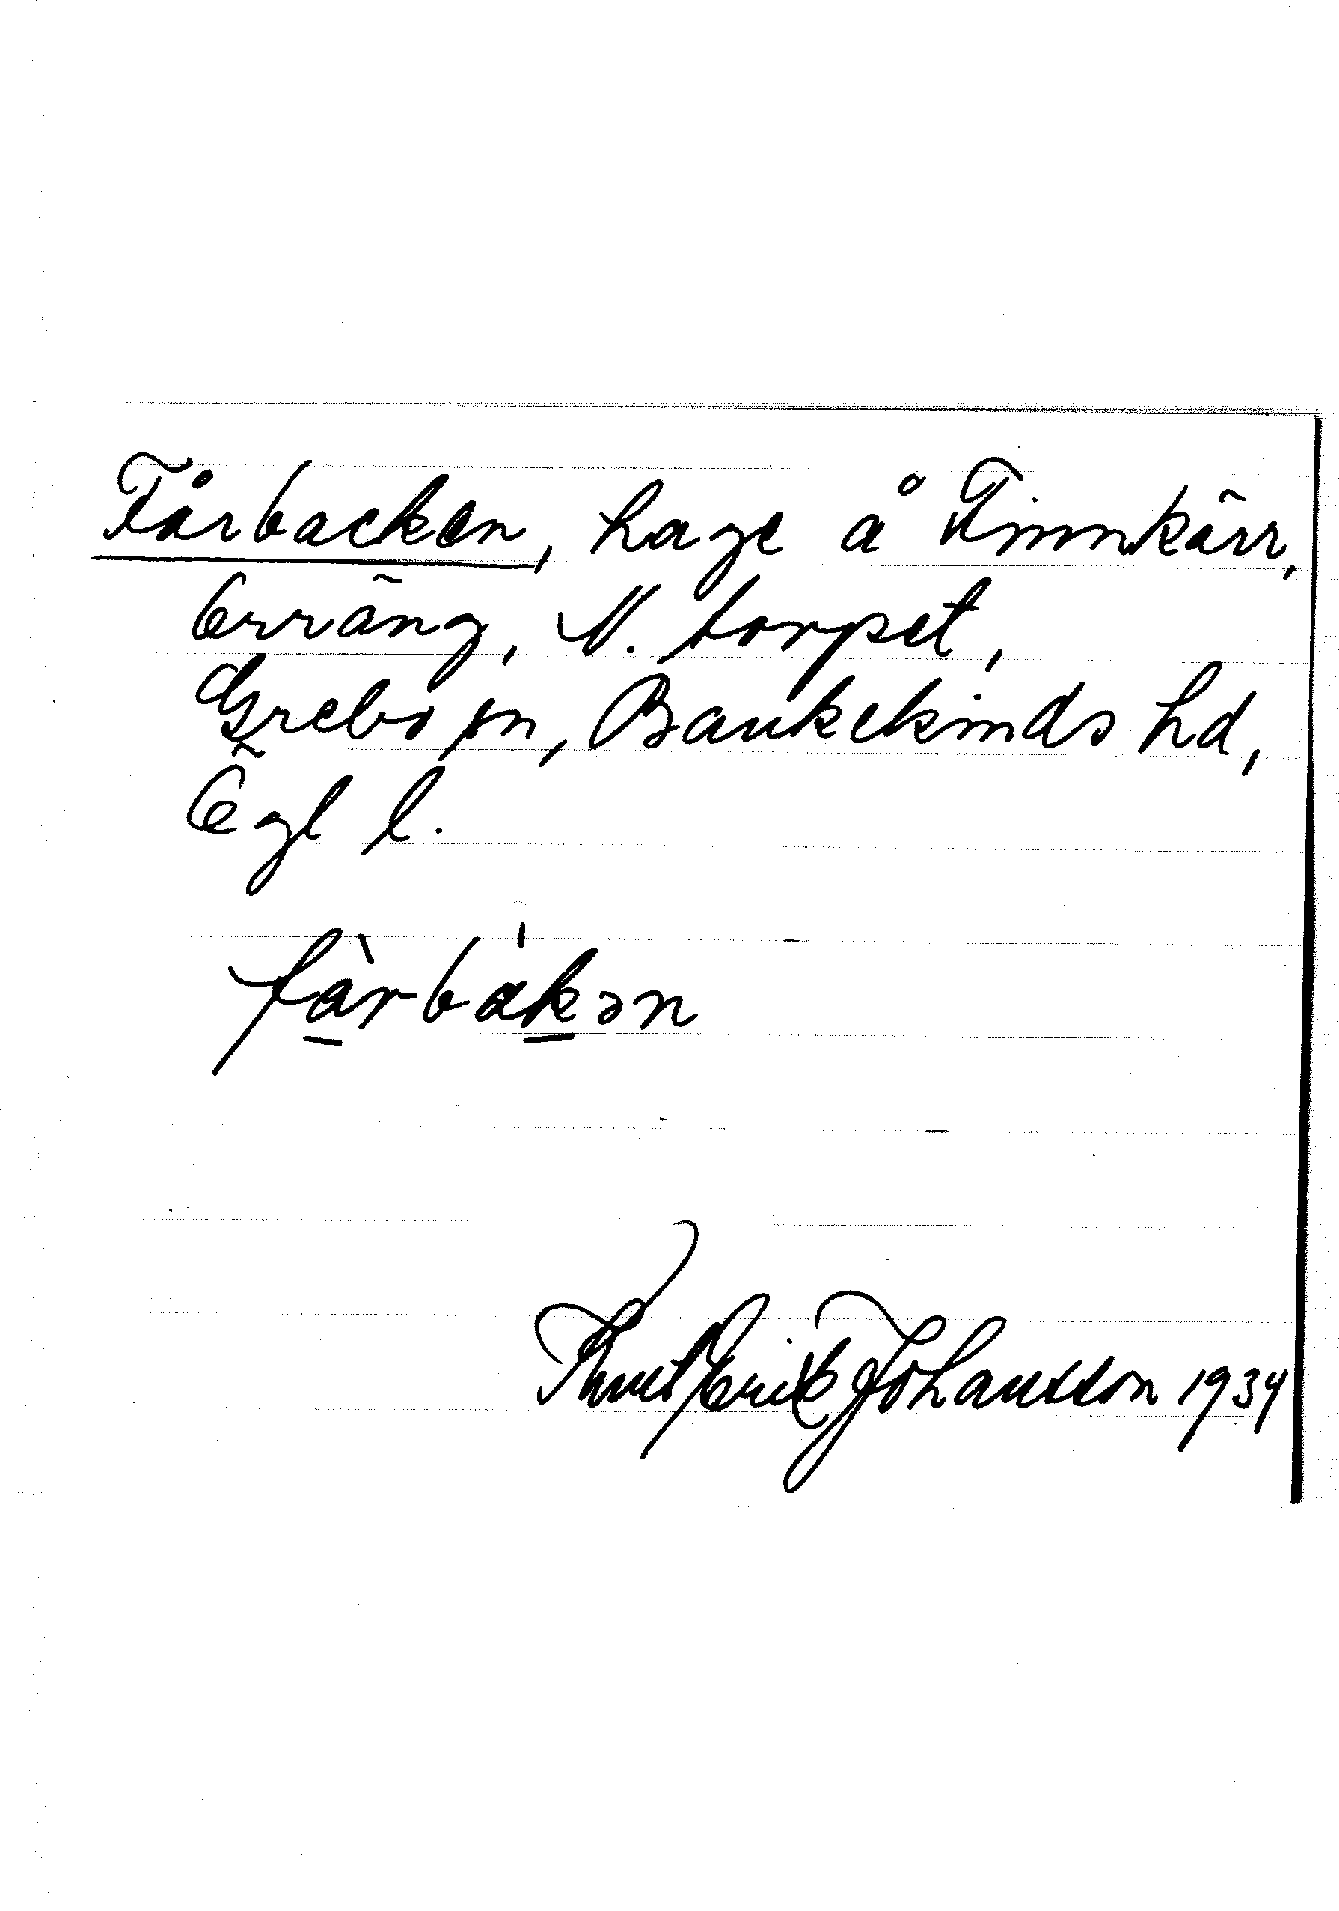 Fårbacken, hage å Finnkärr,
Erräng, N. torpet,
Grebo sn, Bankekinds hd,
Ögl l.
fårbakən
Knut Erik Johansson 1934